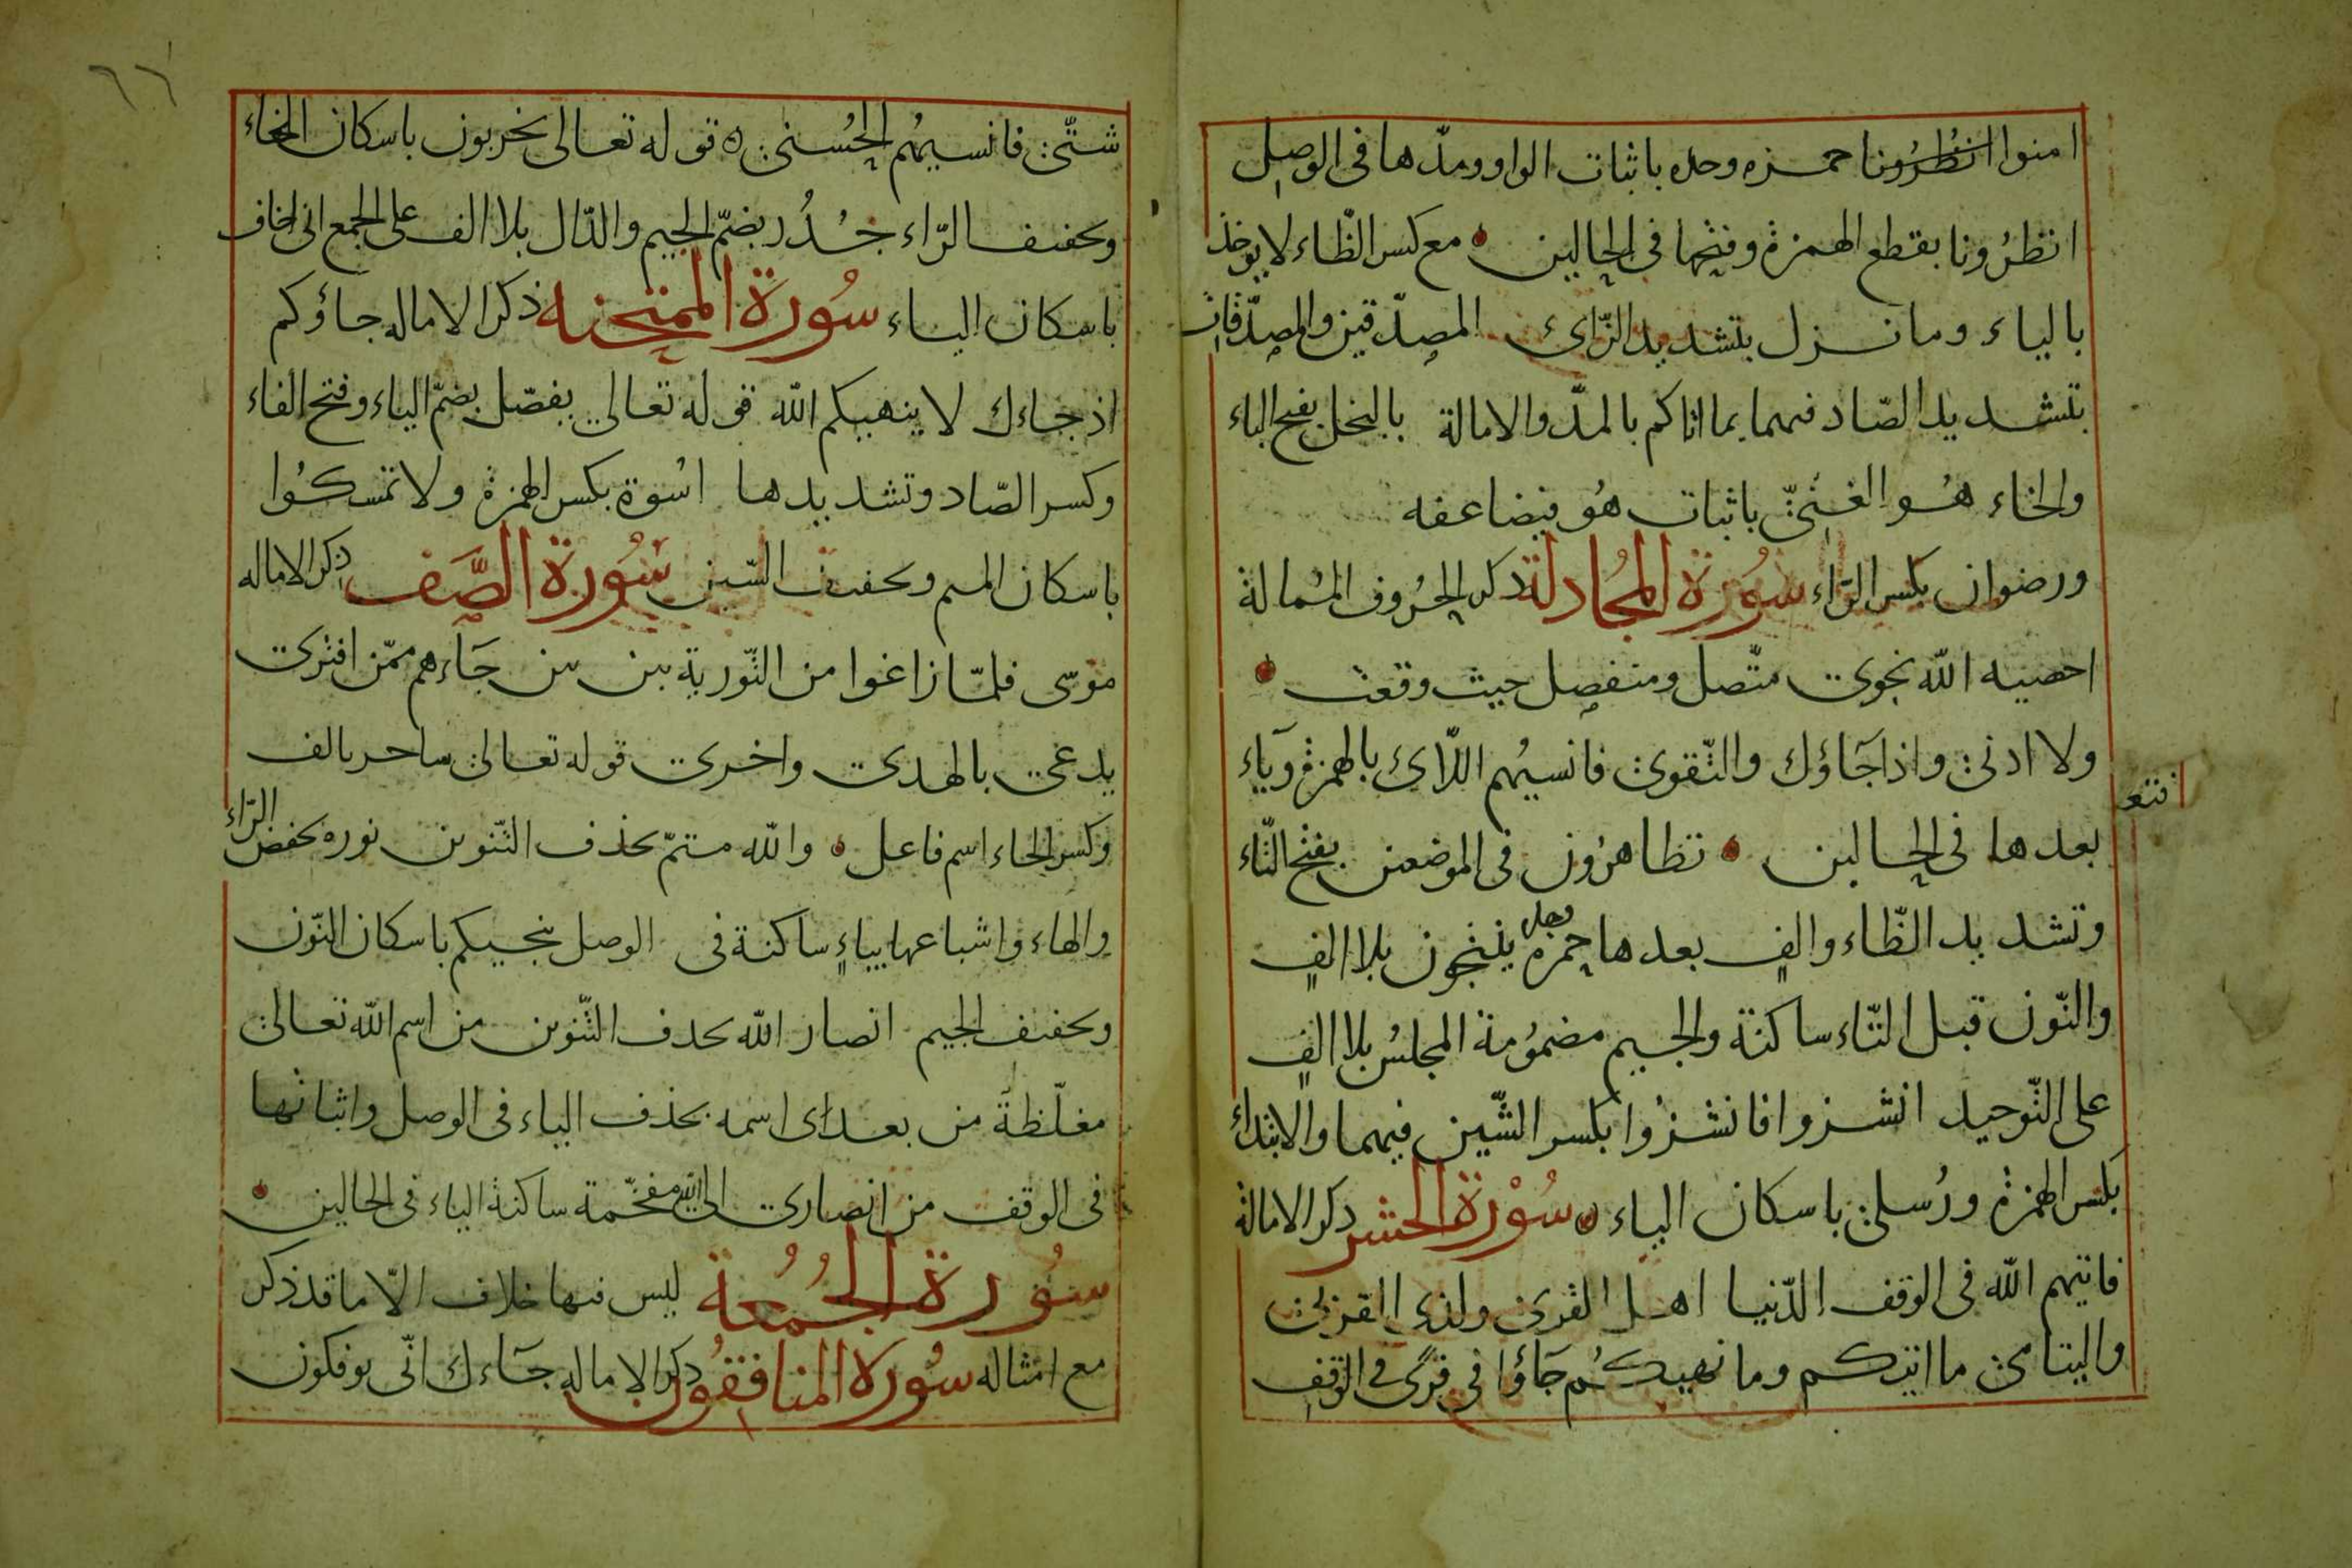 امنوا انظرونا حمزه وحده باثبات الواو ومدّها فى الوصل
انظرونا بقطع الهمزة وفتحها فى الحالين مع كسر الظّاء لا يوخذ
بالياء وما نزل بتشديد الزّاى المصدّقين والمصدّقات
بتشديد الصّاد فيهما بما اتاكم بالمدّ والامالة بالبخل بفتح الباء
والخاء هُو الغنىّ باثبات هُو فيضاعفه
ورضوان بكسر الرّاء سُورة المُجادلة ذكر الحُروف المُمالة
احصيه الله نجوى متّصل ومنفصل حيث وقعت
ولا ادنى واذا جَاؤك والتّقوى فانسيهُم اللّاى بالهمزة وَياء
بعدها فى الحالين تظاهرُون فى الموضعين بفتح التّاء
وتشديد الظّاء والفٍ بعدها حمزة وحده ينتجون بلا الفٍ
والنّون قبل التّاء ساكنة والجيم مضمُومة المجلسُ بلا الفٍ
على التّوحيد انشزوا فانشزُوا بكسر الشّين فيهما والابتداء
بكسر الهمزة ورُسلى باسكان الياء سُوْرة الحشر ذكر الامالة
فاتيهم الله فى الوقف الدّنيا اهل القرى ولذى القربى
واليتامى ما اتيكم وما نهيكُم جَاؤا فى قرًى فى الوقف
٦٦
شتّى فانسيهُم الحُسنى ه قوله تعالى يخربون باسكان الخاء
وتخفيف الرّاء جُدُر بضمّ الجيم والدّال بلا الف على الجمع انى اخاف
باسكان الياء سُورة الممتحنه ذكر الاماله جاؤكم
اذ جاءك لا ينهيكم الله قوله تعالى يفصّل بضمّ الياء وفتح الفاء
وكسر الصّاد وتشديدها اسْوة بكسر الهمزة ولا تمسكُوا
باسكان الميم وتخفيف السّين سُورة الصَّف ذكر الاماله
موسى فلمّا زاغوا من التّورية بين بين جَاءهم ممّن افترى
يدعى بالهدى واخرى قوله تعالى ساحر بالف
وكسر الحاء اسم فاعل والله متمّ بحذف التّنوين نوره بخفض الرّاء
والهاء واشباعها بياءٍ ساكنة فى الوصل ينجيكم باسكان النّون
وتخفيف الجيم انصار الله بحذف التّنوين من اسم الله تعالى
مغلّظة من بعدى اسمه بحذف الياء فى الوصل واثباتها
فى الوقف من انصارى الى الله مفخّمة ساكنة الياء فى الحالين
سُورة الجُمُعة ليس فيها خلاف الّا ما قد ذكر
مع امثاله سُورة المنافقُون ذكر الاماله جَاءك انّى يوفكون